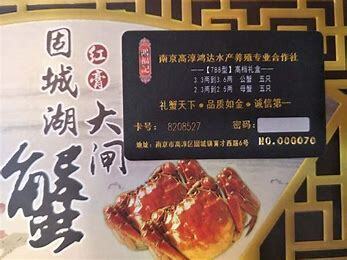 固城湖
红膏
大闸
蟹
鸿福记
南京高淳鸿达水产养殖专业合作社
【788型】高档礼盒
3.3两到3.6两 公蟹 五只
2.3两到2.6两 母蟹 五只
礼蟹天下·品质如金·诚信第一
卡号: 8208527 密码:
地址: 南京市高淳区固城镇荚才西路6号
NO.000070